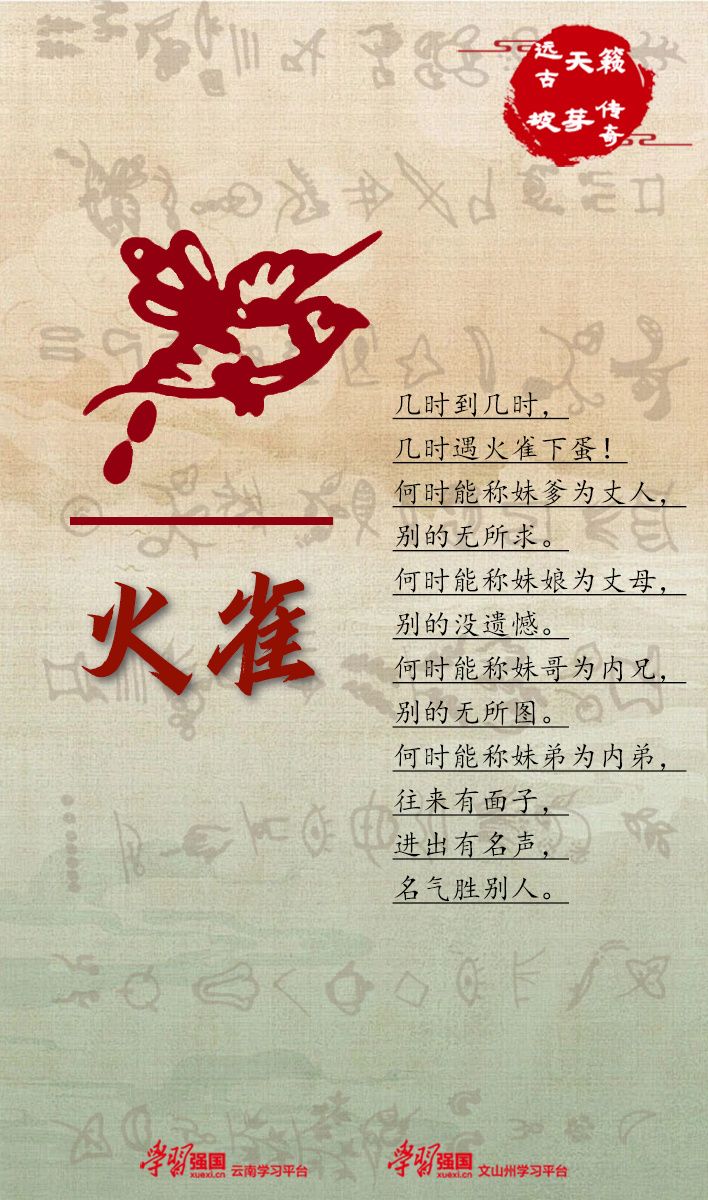 远古天籁
坡芽传奇
火雀
几时到几时，
几时遇火雀下蛋！
何时能称妹爹为丈人，
别的无所求。
何时能称妹娘为丈母，
别的没遗憾。
何时能称妹哥为内兄，
别的无所图。
何时能称妹弟为内弟，
往来有面子，
进出有名声，
名气胜别人。
学习强国
xuexi.cn
云南学习平台
学习强国
xuexi.cn
文山州学习平台